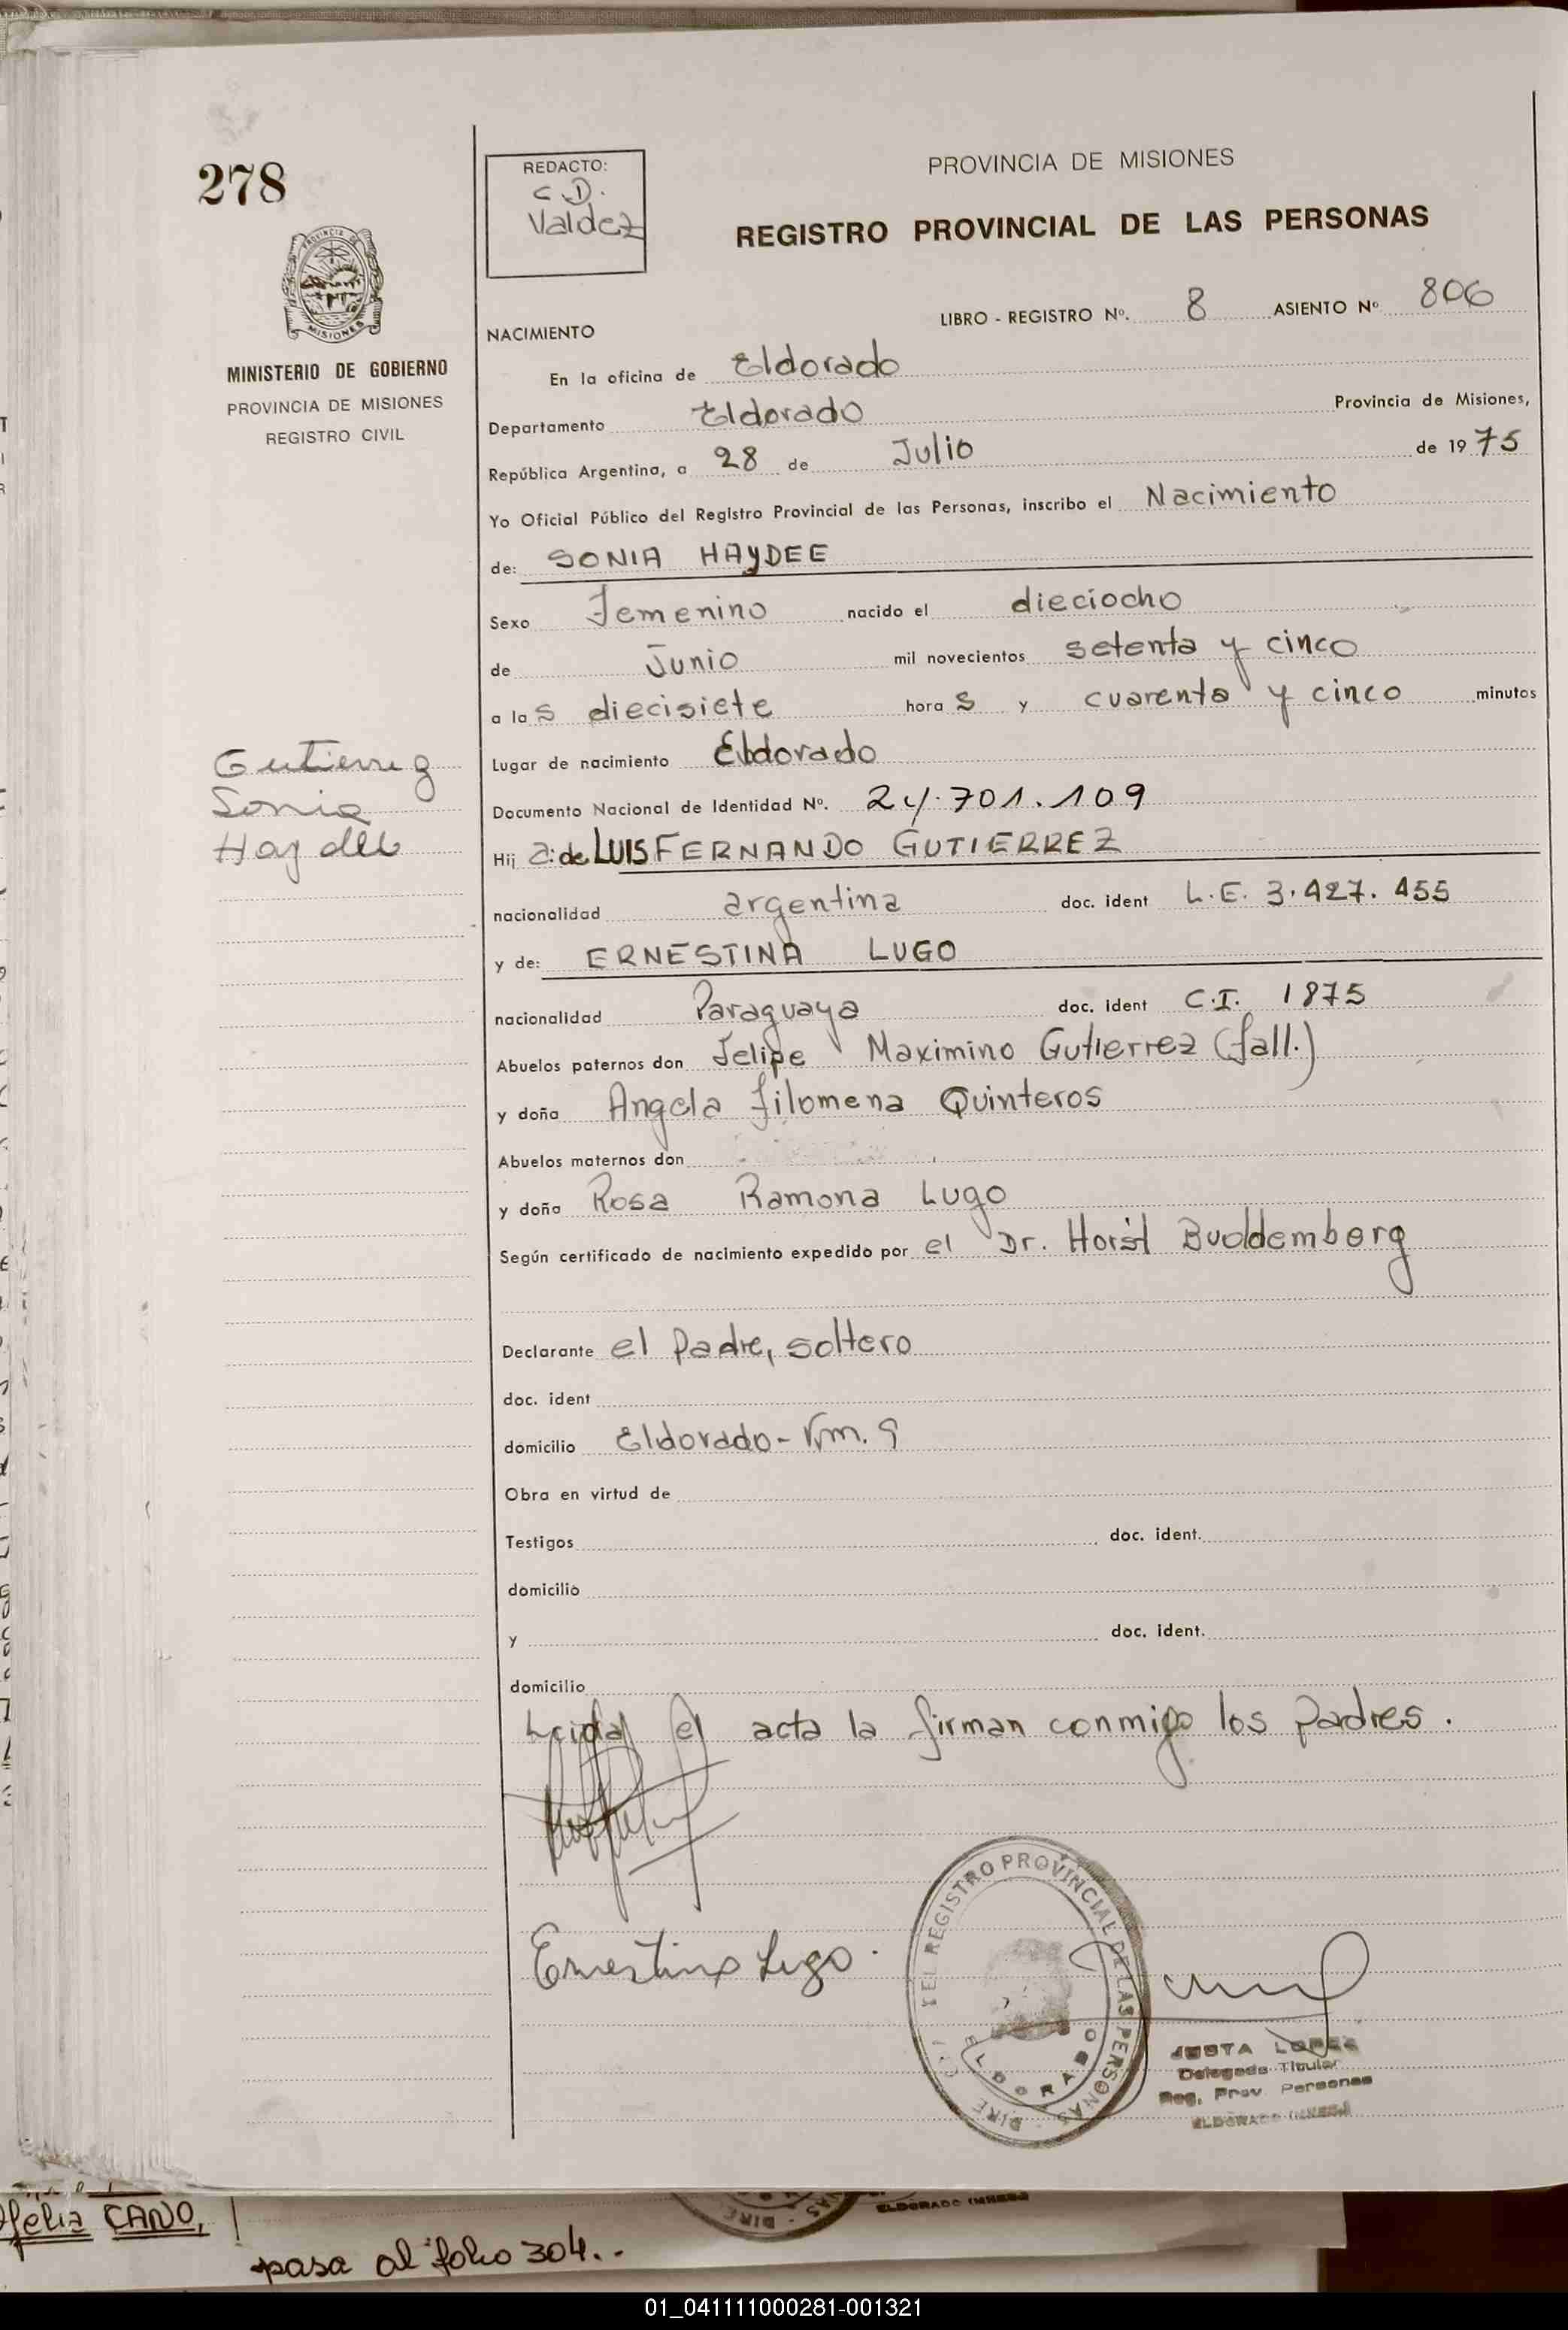 278
REDACTO:
C D.
Valdez
PROVINCIA DE MISIONES
REGISTRO PROVINCIAL DE LAS PERSONAS
PROVINCIA DE
MISIONES
MINISTERIO DE GOBIERNO
PROVINCIA DE MISIONES
REGISTRO CIVIL
LIBRO - REGISTRO Nº. 8 ASIENTO Nº 806
NACIMIENTO
En la oficina de Eldorado
Departamento Eldorado Provincia de Misiones,
República Argentina, a 28 de Julio de 19 75
Yo Oficial Público del Registro Provincial de las Personas, inscribo el Nacimiento
de: SONIA HAYDEE
Sexo Femenino nacido el dieciocho
de Junio mil novecientos setenta y cinco
a la s diecisiete hora s y cuarenta y cinco minutos
Gutierrez
Sonia
Haydee
Lugar de nacimiento Eldorado
Documento Nacional de Identidad Nº. 24.701.109
Hij a: de LUIS FERNANDO GUTIERREZ
nacionalidad argentina doc. ident L.E. 3.427.455
y de: ERNESTINA LUGO
nacionalidad Paraguaya doc. ident C.I. 1875
Abuelos paternos don Felipe Maximino Gutierrez (fall.)
y doña Angela Filomena Quinteros
Abuelos maternos don
y doña Rosa Ramona Lugo
Según certificado de nacimiento expedido por el Dr. Horst
Declarante el padre, soltero
doc. ident
domicilio Eldorado - Km. 9
Obra en virtud de
Testigos doc. ident.
domicilio
y doc. ident.
domicilio
Leida el acta la firman conmigo los padres.
Ernestina Lugo.
DEL REGISTRO PROVINCIAL DE LAS PERSONAS - DIRE
ELDORADO
JUSTA LOPEZ
Delegada Titular
Reg. Prov. Personas
ELDORADO
CANO,
ELDORADO
pasa al folio 304..
01_041111000281-001321